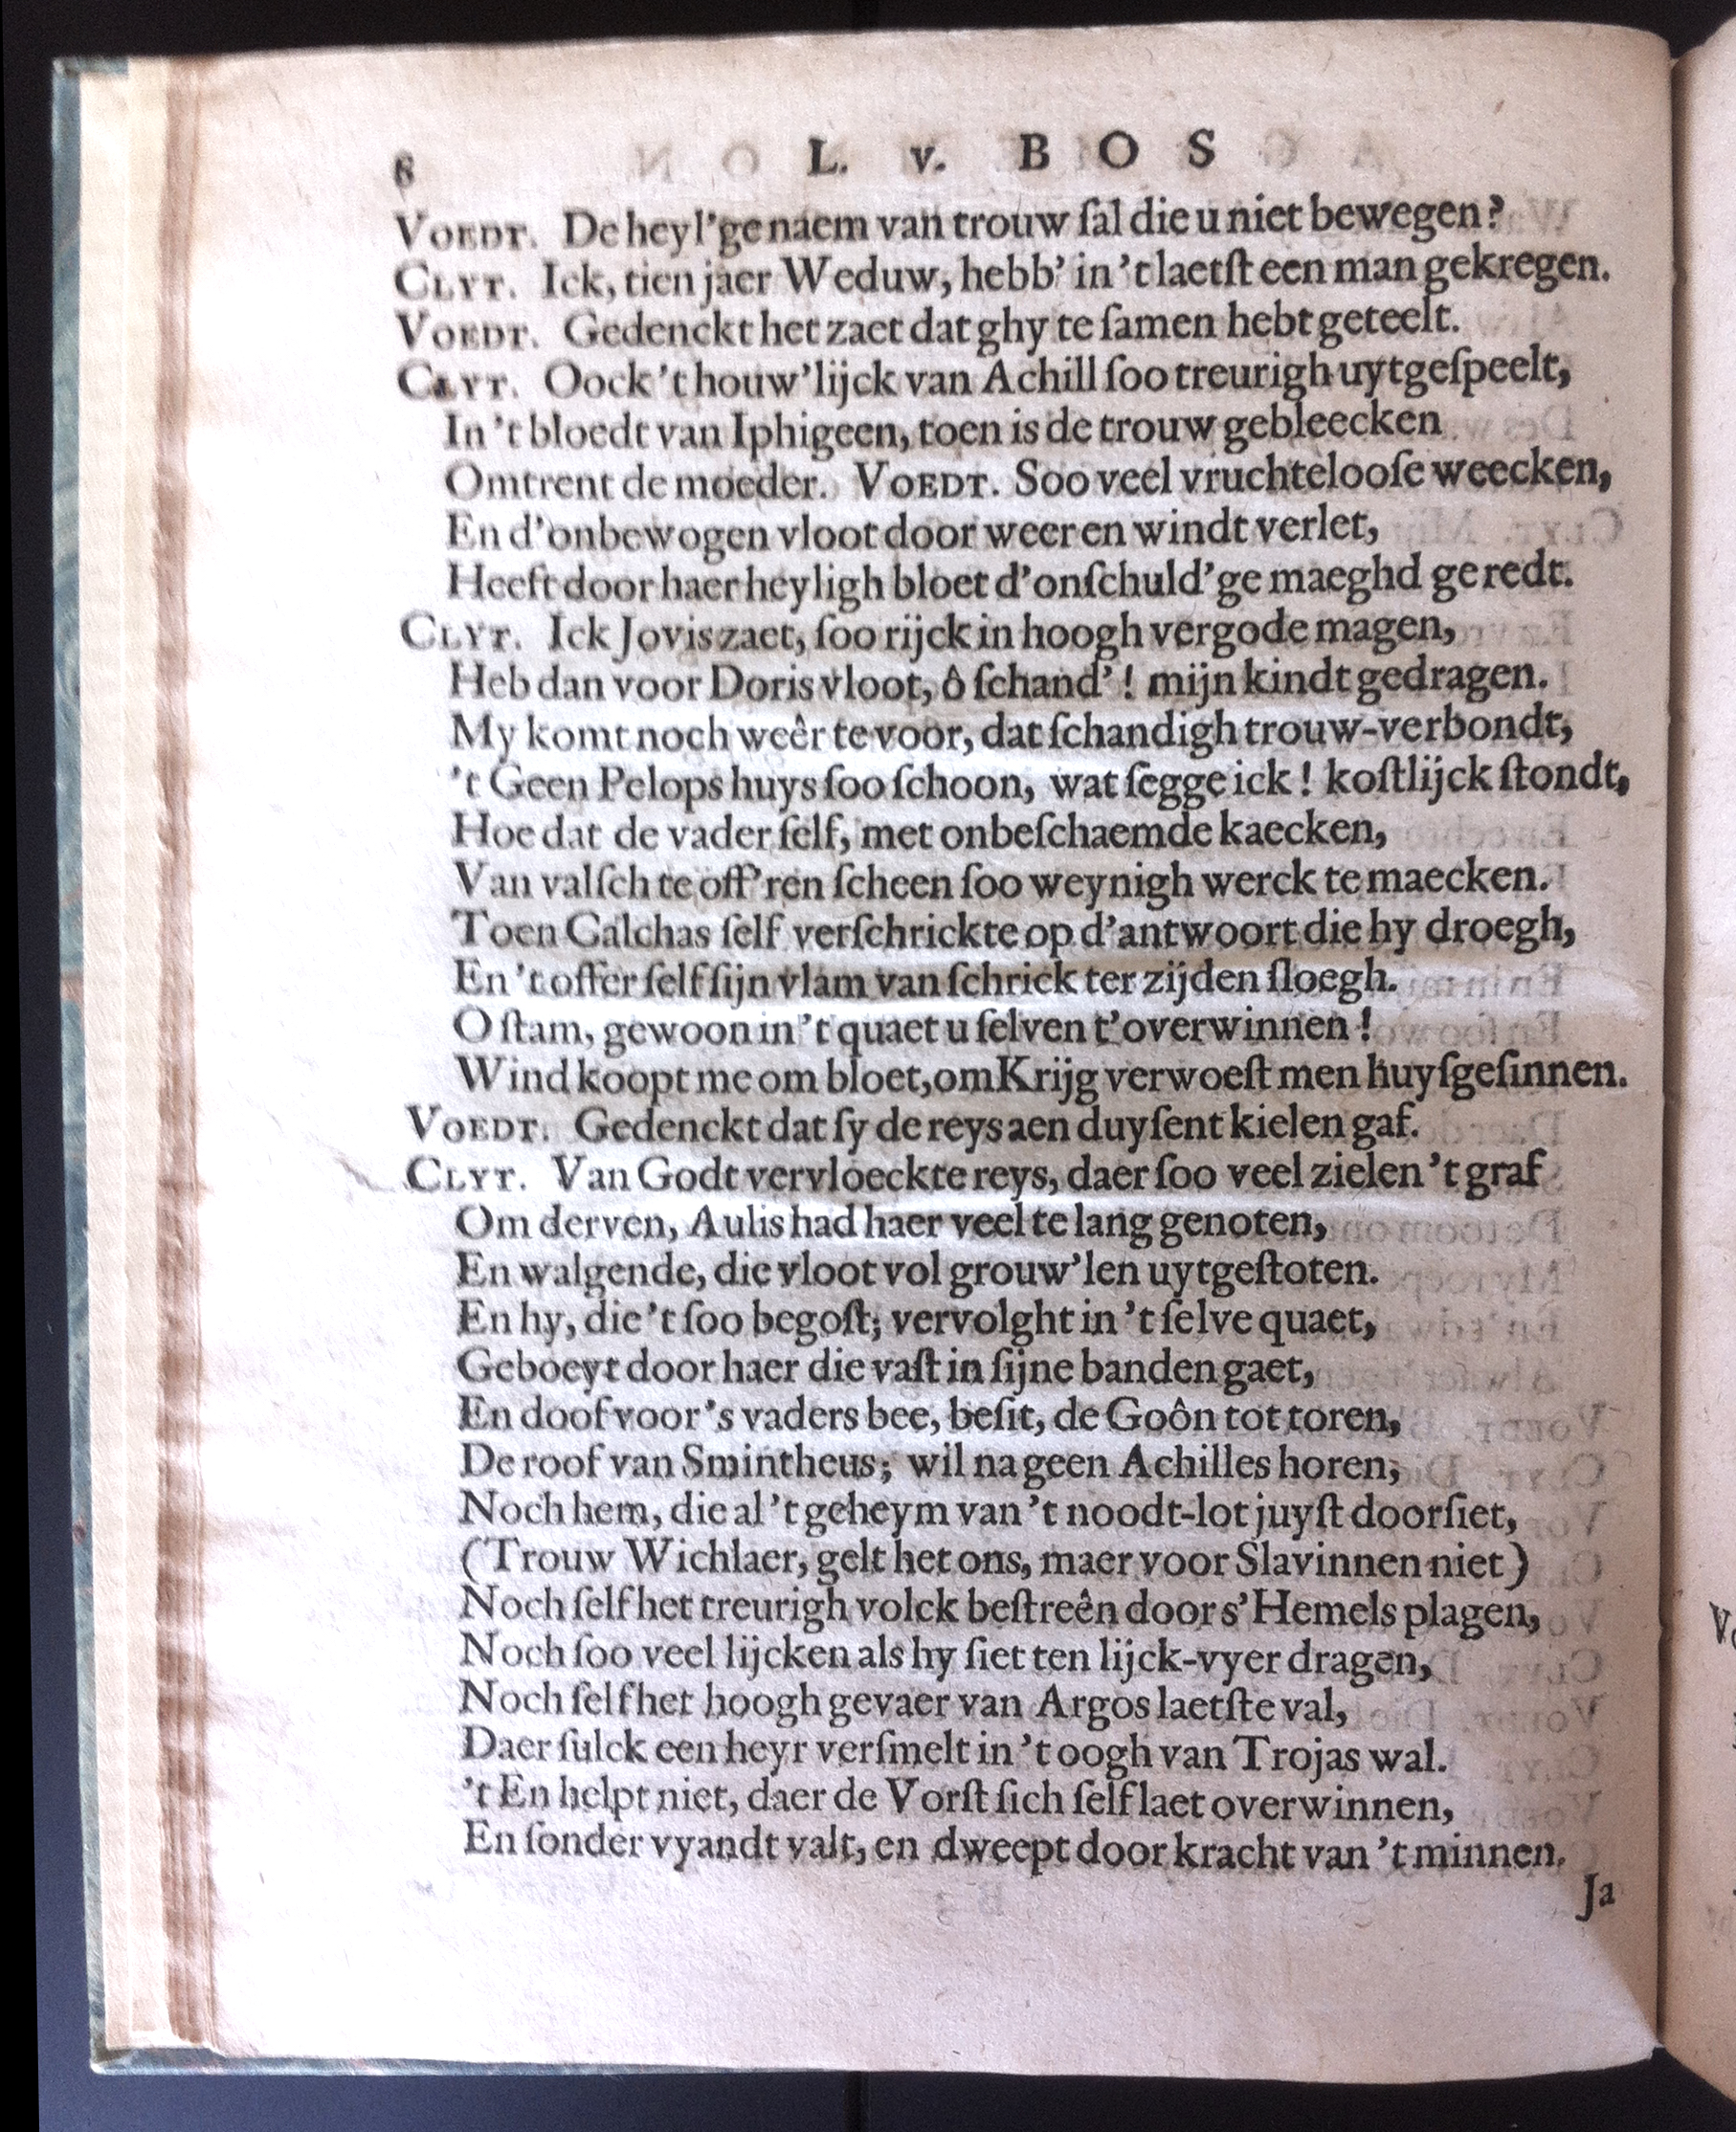 8 L. v. BOS
VOEDT. De heyl'ge naem van trouw ſal die u niet bewegen?
CLYT. Ick, tien jaer Weduw, hebb' in 't laetſt een man gekregen.
VOEDT. Gedenckt het zaet dat ghy te ſamen hebt geteelt.
CLYT. Oock 't houw'lijck van Achill ſoo treurigh uytgeſpeelt,
In 't bloedt van Iphigeen, toen is de trouw gebleecken
Omtrent de moeder. VOEDT. Soo veel vruchtelooſe weecken,
En d'onbewogen vloot door weer en windt verlet,
Heeft door haer heyligh bloet d'onſchuld'ge maeghd geredt.
CLYT. Ick Jovis zaet, ſoo rijck in hoogh vergode magen,
Heb dan voor Doris vloot, ô ſchand'! mijn kindt gedragen.
My komt noch weêr te voor, dat ſchandigh trouw-verbondt,
't Geen Pelops huys ſoo ſchoon, wat ſegge ick! koſtlijck ſtondt,
Hoe dat de vader ſelf, met onbeſchaemde kaecken,
Van valſch te off'ren ſcheen ſoo weynigh werck te maecken.
Toen Calchas ſelf verſchrickte op d'antwoort die hy droegh,
En 't offer ſelf ſijn vlam van ſchrick ter zijden ſloegh.
O ſtam, gewoon in 't quaet u ſelven t'overwinnen!
Wind koopt me om bloet, om Krijg verwoeſt men huyſgeſinnen.
VOEDT. Gedenckt dat ſy de reys aen duyſent kielen gaf.
CLYT. Van Godt vervloeckte reys, daer ſoo veel zielen 't graf
Om derven, Aulis had haer veel te lang genoten,
En walgende, die vloot vol grouw'len uytgeſtoten.
En hy, die 't ſoo begoſt; vervolght in 't ſelve quaet,
Geboeyt door haer die vaſt in ſijne banden gaet,
En doof voor 's vaders bee, beſit, de Goôn tot toren,
De roof van Smintheus; wil na geen Achilles horen;
Noch hem, die al 't geheym van 't noodt-lot juyſt doorſiet,
(Trouw Wichlaer, gelt het ons, maer voor Slavinnen niet)
Noch ſelf het treurigh volck beſtreên door s'Hemels plagen,
Noch ſoo veel lijcken als hy ſiet ten lijck-vyer dragen,
Noch ſelf het hoogh gevaer van Argos laetſte val,
Daer ſulck een heyr verſmelt in 't oogh van Trojas wal.
't En helpt niet, daer de Vorſt ſich ſelf laet overwinnen,
En ſonder vyandt valt, en dweept door kracht van 't minnen.
Ja